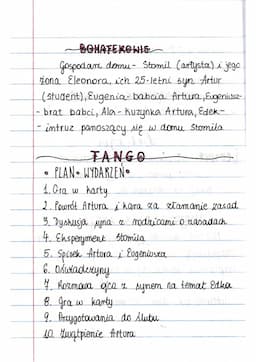 BOHATEROWIE
Gospodarz domu - Stomil (artysta) i jego
żona Eleonora, ich 25-letni syn Artur
(student), Eugenia - babcia Artura, Eugeniusz
- brat babci, Ala - kuzynka Artura, Edek -
- intruz panoszący się w domu Stomila
TANGO
• PLAN WYDARZEŃ •
1. Gra w karty
2. Powrót Artura i kara za złamanie zasad
3. Dyskusja syna z rodzicami o zasadach
4. Eksperyment Stomila
5. Spisek Artora i Eugeniusza
6. Oświadczyny
7. Rozmowa ojca z synem na temat Edka
8. Gra w karty
9. Przygotowania do ślubu
10. Zwątpienie Artura